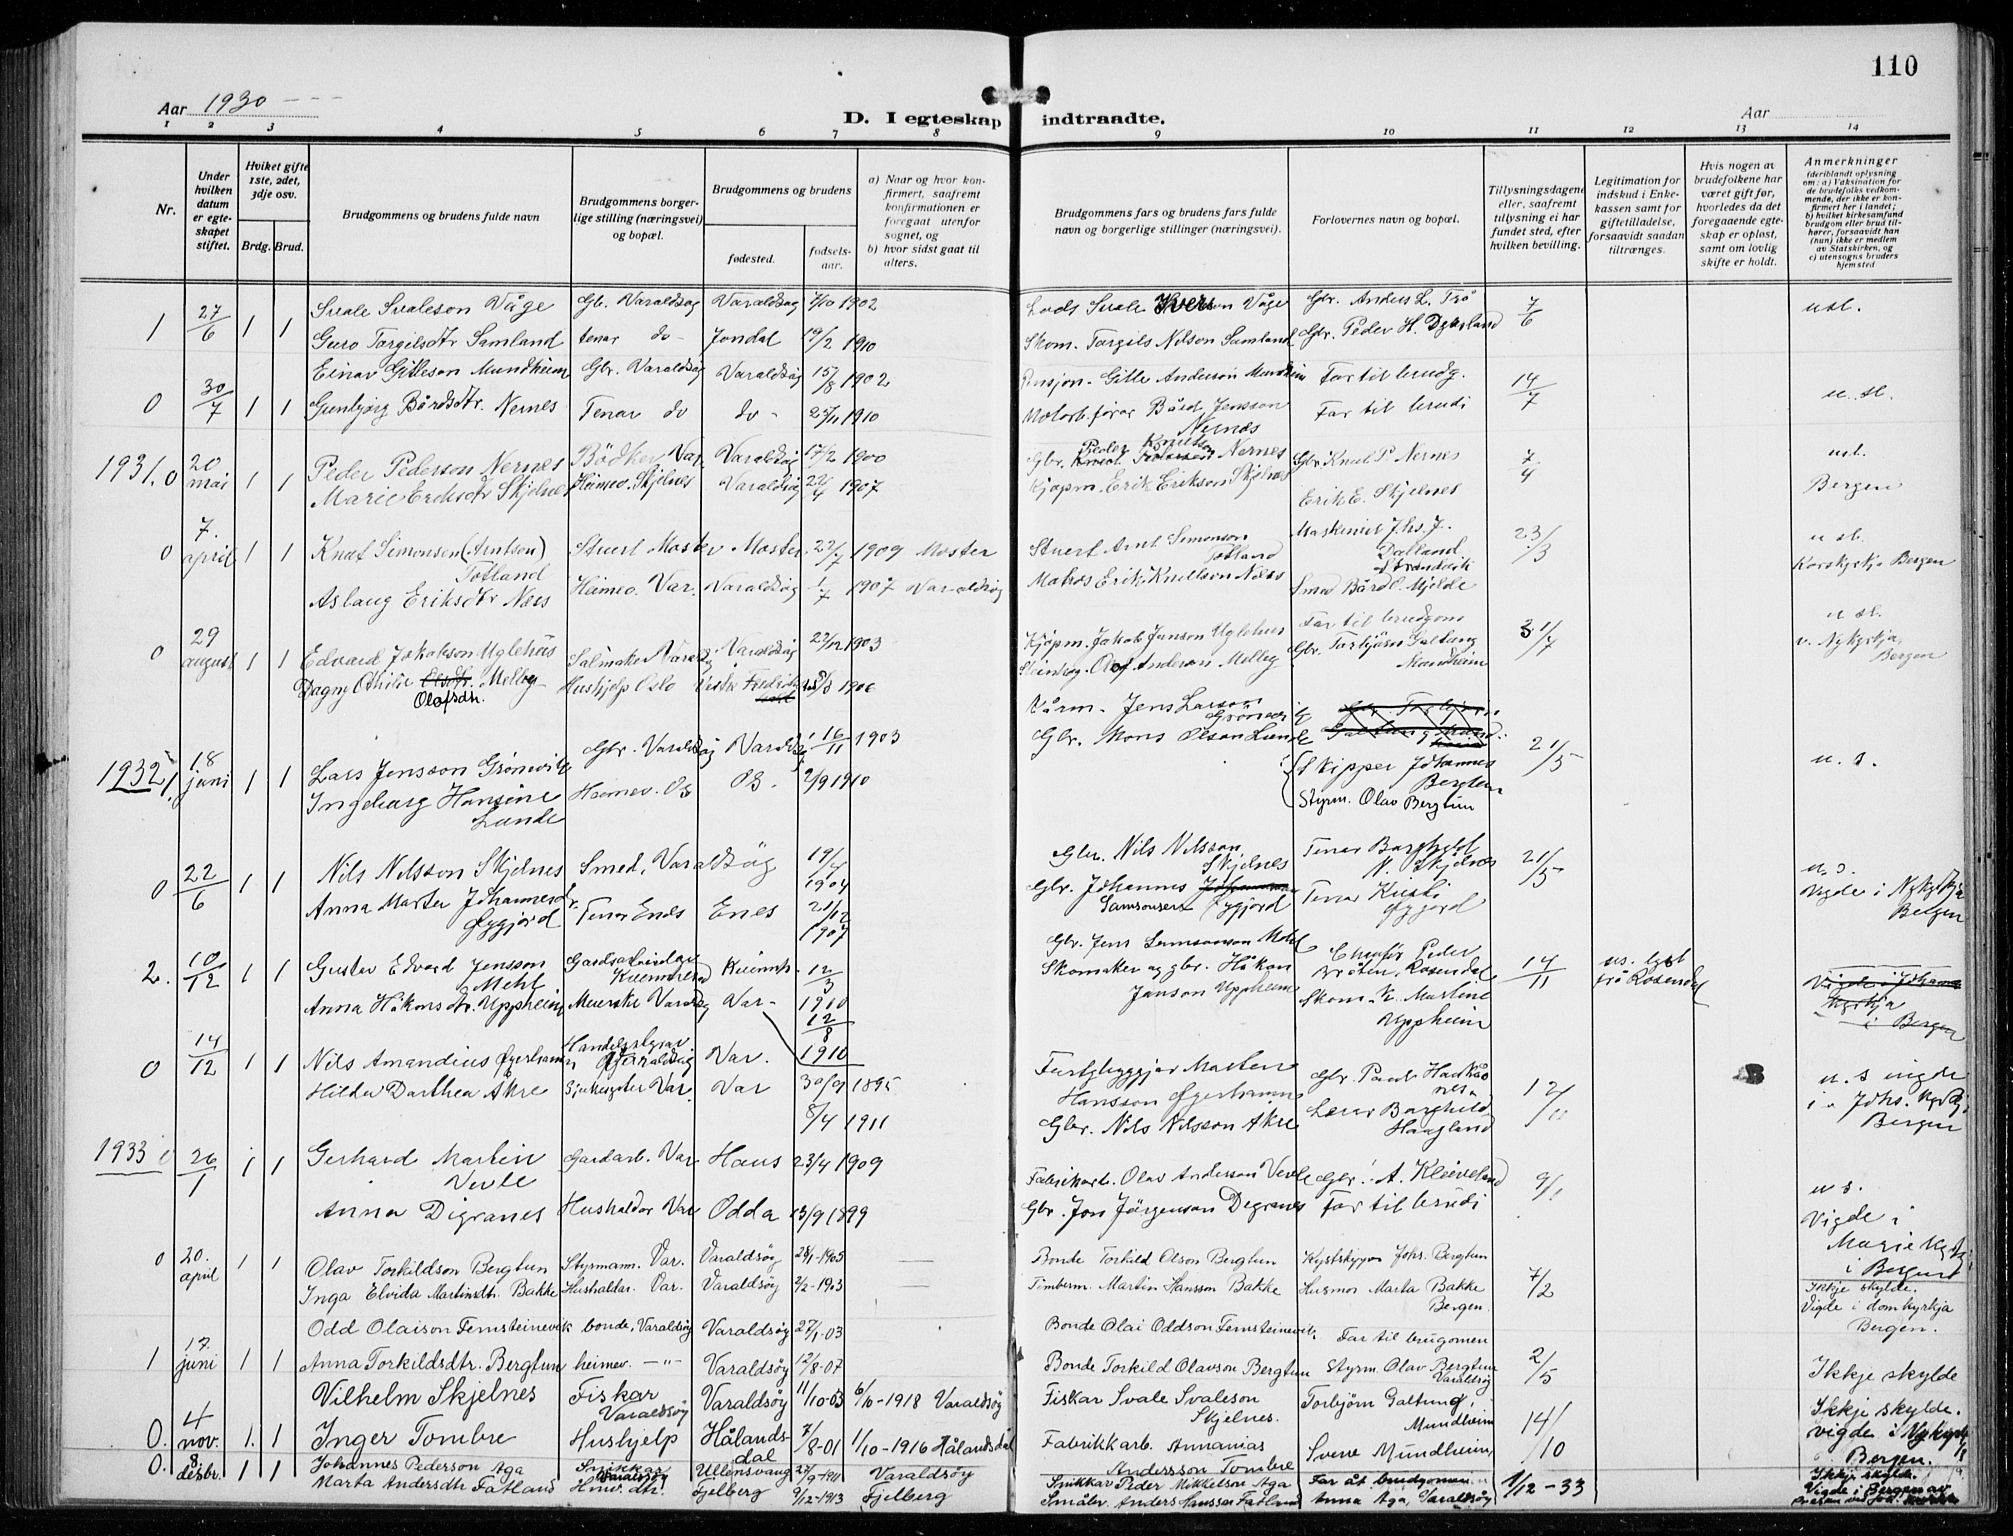 110
Aar 1930
Aar
D. I egteskap indtraadte.
1 2 3 4 5 6 7 8 9 10 11 12 13 14
Nr.
Under hvilken datum er egteskapet stiftet.
Hviket gifte 1ste, 2det, 3dje osv.
Brdg. Brud.
Brudgommens og brudens fulde navn
Brudgommens borgerlige stilling (næringsvei) og bopæl.
Brudgommens og brudens
fødested.
fødselsaar.
a) Naar og hvor konfirmert, saafremt konfirmationen er foregaat utenfor sognet, og
b) hvor sidst gaat til alters.
Brudgommens fars og brudens fars fulde navn og borgerlige stillinger (næringsvei).
Forlovernes navn og bopæl.
Tillysningsdagene eller, saafremt tillysning ei har fundet sted, efter hvilken bevilling.
Legitimation for indskud i Enkekassen samt for giftetilladelse, forsaavidt saadan tiltrænges.
Hvis nogen av brudefolkene har været gift før, hvorledes da det foregaaende egteskap er opløst, samt om lovlig skifte er holdt.
Anmerkninger (deriblandt oplysning om: a) Vaksination for de brudefolks vedkommende, der ikke er konfirmert her i landet; b) hvilket kirkesamfund brudgom eller brud tilhører, forsaavidt han (hun) ikke er medlem av Statskirken, og c) utensogns bruders hjemsted
1 27/6 1 1 Svale Svaleson Våge Gb. Varaldsøg Varaldsøg 7/10 1902 Lods Svale Iverson Våge Gbr. Anders L. Trå 7/6 usl.
Guro Torgilsdtr Samland tenar do Jondal 19/2 1910 Skom. Torgils Nilson Samland Gbr. Peder H. Dysland
0 30/7 1 1 Einar Gitleson Mundheim Gbr. Varaldsøg Varaldsøg 15/8 1902 Pensjon. Gitle Anderson Mundheim Far til brudg. 14/7 u. sl.
Gunbjørg Bårdsdtr. Nernes Tenar do do 1910 Motorb.førar Bård Jensson Nernes Far til brudi
1931. 0 20 mai 1 1 Peder Pederson Nernes Bödker Var. Varaldsøg 17/2 1900 Gbr. Peder Knutson Nernes Gbr Knut P. Nernes 7/4 usl.
Marie Eriksdtr Skjelnes Heimev. Skjelnes Varaldsøg 1907 Kjøpm. Erik Erikson Skjelnes Erik E. Skjelnes Bergen
0 7. april 1 1 Knut Simonsen (Arntson) Totland Stuert Moster Moster 1909 Moster Stuert Arnt Simonson Totland Maskinist Johs. J. Dalland Strandvik 23/3 u sl.
Aslaug Eriksdtr Næss Heimev. Var. Varaldsøg 1/7 1907 Varaldsøg Matros Erik Knutson Næss Smed Bård O. Mjelde Korskyrkja Bergen
0 29 august 1 1 Edvard Jakobson Uglehus Salmaker Varaldsøg Varaldsøg 22/12 1903 Kjøpm. Jakob Janson Uglehus Far til brudgom 31/7 u sl.
Dagny Othilie Olofsdtr. Melby Hushjelp Oslo 1906 Olof Anderson Melby Gbr. Torbjørn Galtung Mundheim v. Nykyrkja, Bergen
1932 1. 18 juni 1 1 Lars Jensson Grönevik Gbr. Varaldsøg Varaldsøg 16/11 1903 Vårm. Jens Larson Grønevik 21/5 u. s.
Ingeborg Hansine Lunde Heimev. Os OS. 2/9 1910 Gbr. Mons Olson Lunde Skipper Johannes Bergtun
Styrm. Olav Bergtun
0 22/6 1 1 Nils Nilsson Skjelnes Smed, Varaldsøg 19/4 1904 Gbr. Nils Nilsson Skjelnes Tenar Borghild N. Skjelnes 21/5 u. s.
Anna Marta Johannesdtr. Øygjord Tenar Enes Enes 21/12 1907 Gbr. Johannes Samsonsen Øygjord Tenar Kristi Øygjord Vigde i Nykyrkja Bergen
2. 10/12 1 1 Gustav Edvard Jensson Mehl Gardsarbeidar Kvinnherad Kvinnh. 12/3 1910 Gbr. Jens Samsonson Mehl Chaufør Peder Bråten, Rosendal 14/11 us. lyst frå Rosendal
Anna Håkonsdtr. Uppheim Meierske Varaldsøg Var. 12/8 1910 Skomaker og gbr. Håkon Janson Uppheim Skom. K. Martine Uppheim
0 14/12 1 1 Nils Amandius Øyerhamn Handelsbestyrar Varaldsøg Var. 30/9 1895 Fartybyggjar Morten Hansson Øyerhamn Gbr. Paul Haukånes. 12/11 u. s vigde i Johs. kyrkja Bergen
Hilda Dorthea Åkre Var. Var 8/4 1911 Gbr. Nils Nilsson Åkre Lærar Borghild Haugland
1933 0 26/1 1 1 Gerhard Martin Vevle Gardarb. Var Haus 23/4 1909 Fabrikarb. Olav Anderson Vevle Gbr. A. Kleiveland 9/1 u s.
Anna Digranes Hushaldar Var Odda 13/9 1899 Gbr. Jon Jörgenson Degranes Far til brudi Vigde i Mariekyrkja i Bergen
0 20. april 1 1 Olav Torkildson Bergtun Styrmann. Var. Varaldsöy 28/1-1905 Bonde Torkild Olson Bergtun Kystskipper Johs. Bergtun 7/2 Ikkje skylde.
Inga Elvida Martinsdtr. Bakke Hushaldar. Var. Varaldsöy 2/2-1903 Timberm. Martin Hansson Bakke Husmor Marta Bakke Bergen. Vigde i domkyrkja Bergen.
1 17. juni 1 1 Odd Olaison Femsteinevik bonde, Varaldsöy Varaldsöy 27/1-03 Bonde Olai Oddson Femsteinevik Far til brugomen 2/5 Ikkje skylde
Anna Torkildsdtr. Bergtun heimev. —"— Varaldsöy 12/8-07 Bonde Torkild Olavson Bergtun Styrm. Olav Bergtun Varaldsöy
0. 4 nov. 1. 1 Vilhelm Skjelnes Fiskar Varaldsöy Varaldsöy 11/10-03 6/10-1918 Varaldsöy Fiskar Svale Svaleson Skjelnes. Torbjörn Galtung, Mundheim 14/10 Ikkje skylde.
Inger Tombre Hushjelp Hålandsdal 7/8-01 1/10-1916 Hålandsdal Fabrikkarb. Annanias Andersson Tombre Sverre Mundheim, vigde i Nykyrkja Bergen.
0. 8. desbr. 1 1 Johannes Pederson Aga Snikkar Varaldsöy Ullensvang 27/9-1911 Varaldsöy Snikkar Peder Mikkelson Aga Far åt brudgomen 1/12-33 Ikkje skylde.
Marta Andersdtr Fatland Hmv. dtr. Fjelberg 9/12-1913 Fjelberg Småbr. Anders Hansson Fatland Anna Aga, Varaldsöy Vigde i Bergen av